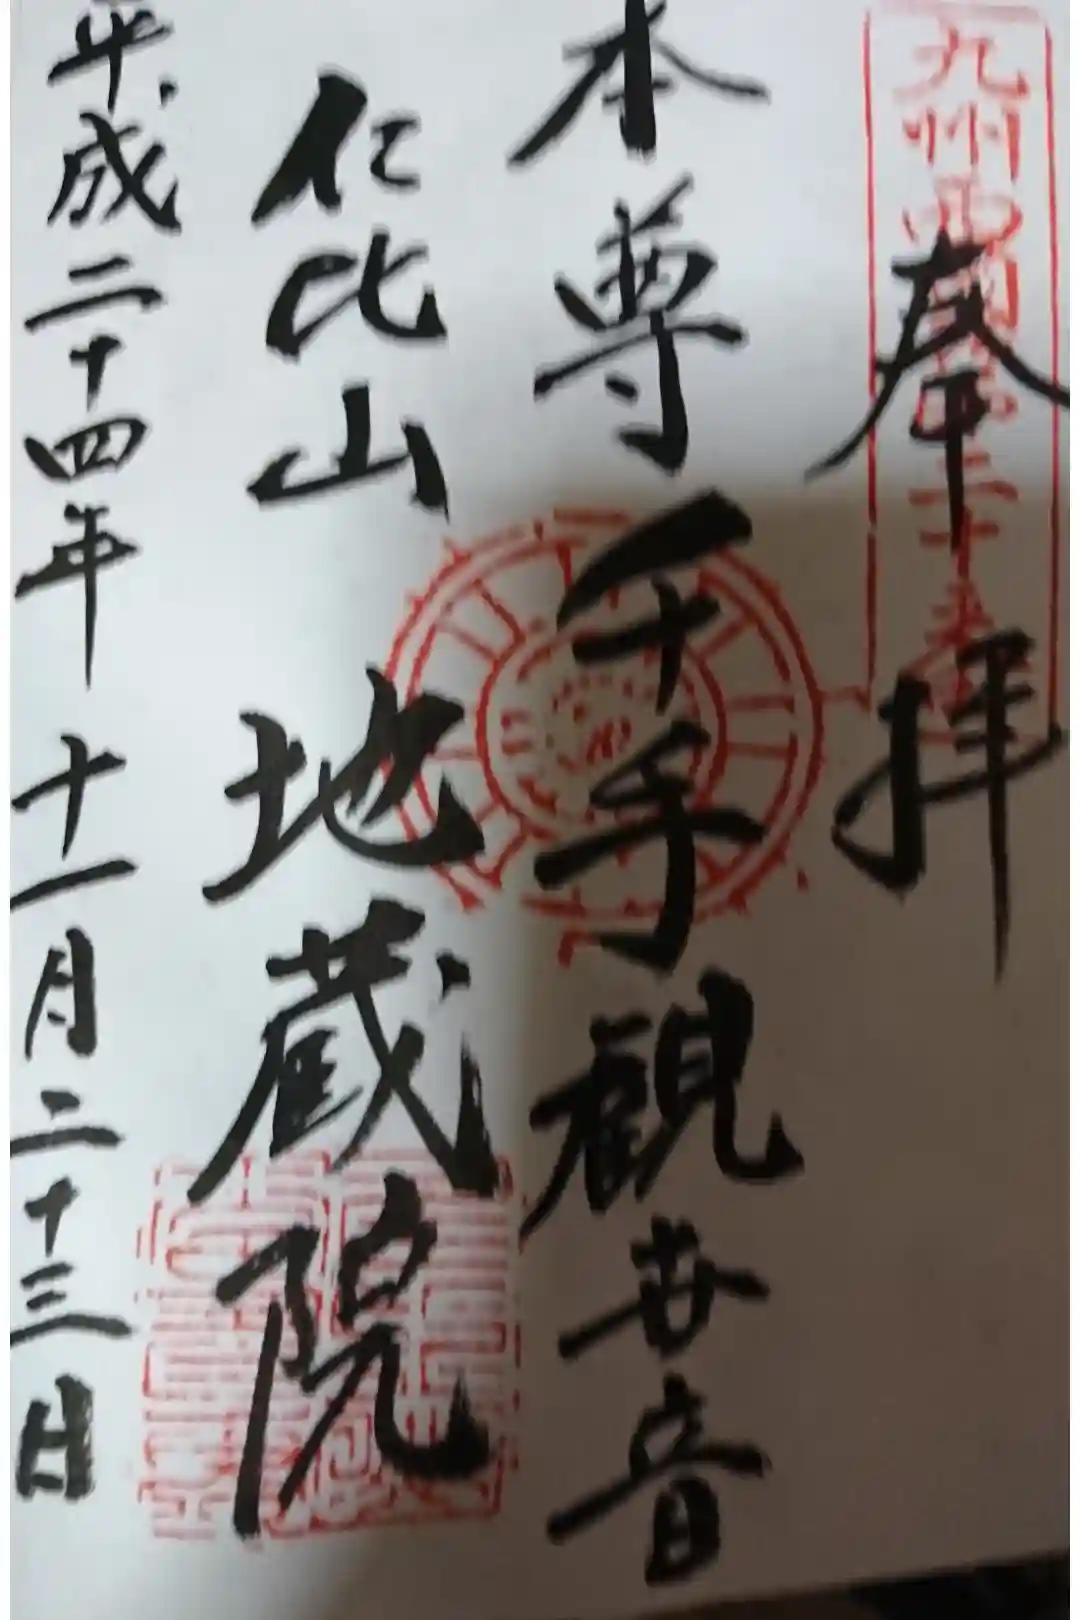 九州西国第二十番
奉拝
本尊千手観世音
仁比山 地蔵院
平成二十四年 十一月二十三日